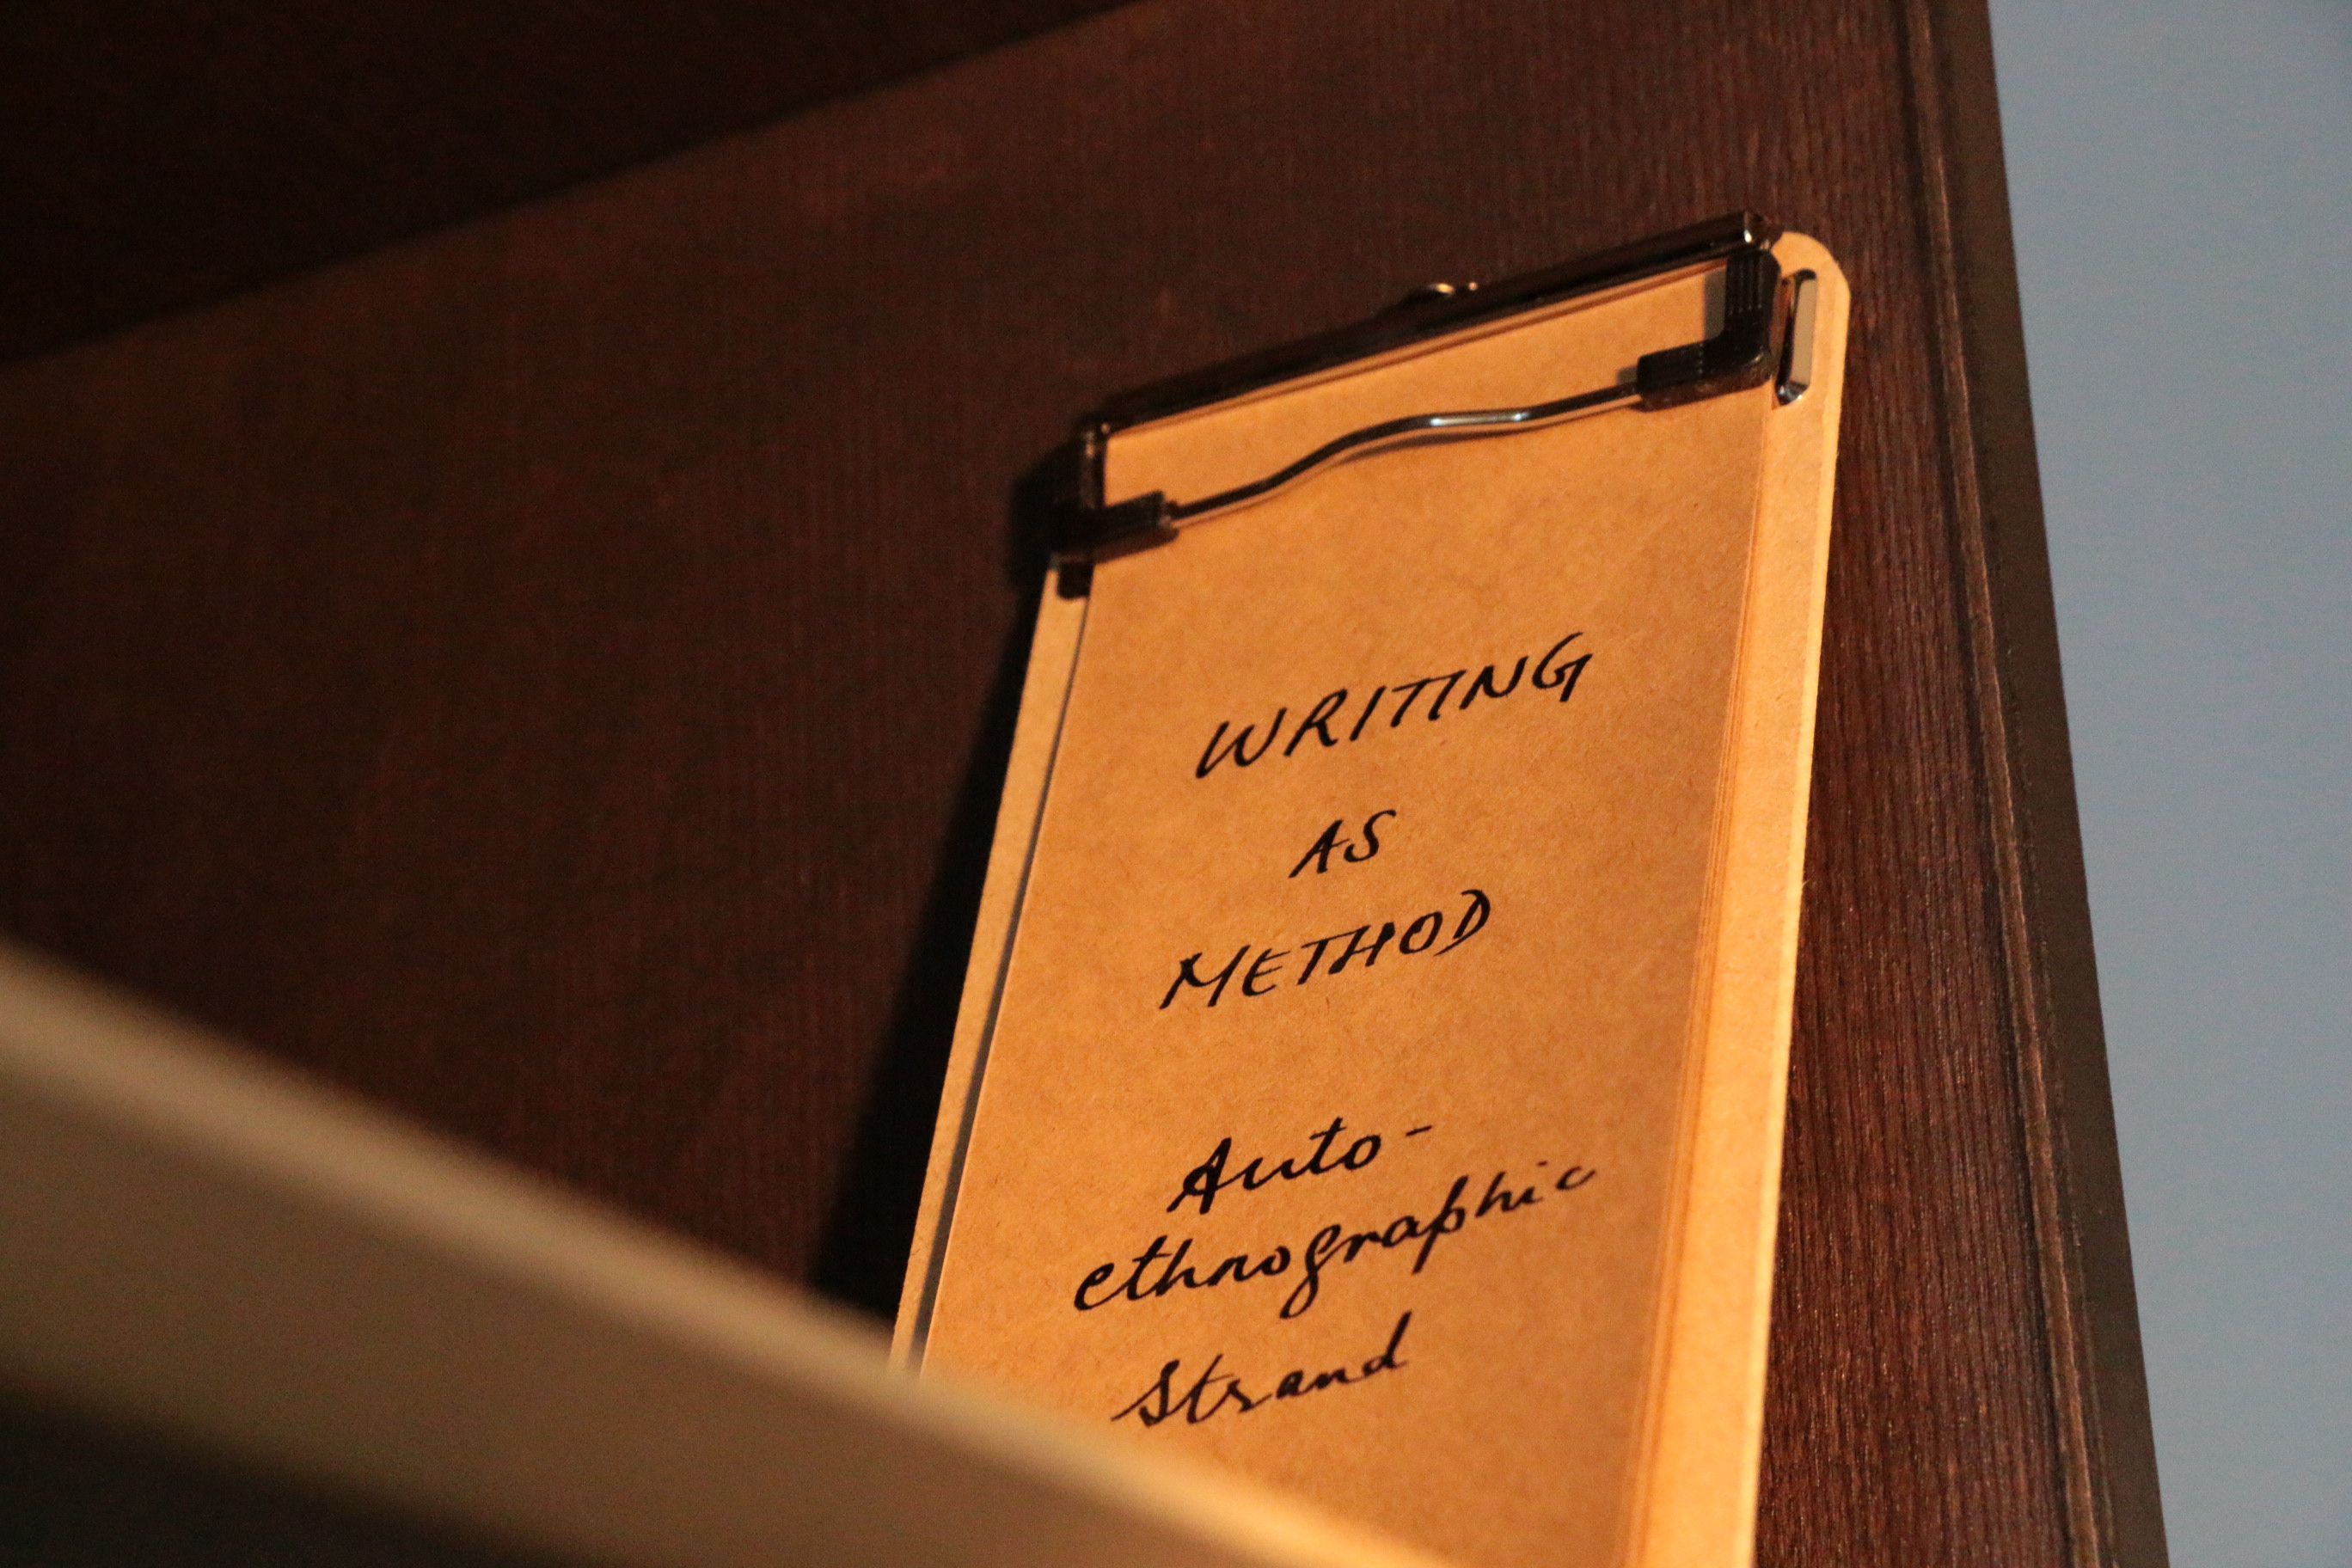 WRITING
AS
METHOD
Auto-
ethnographic
Strand